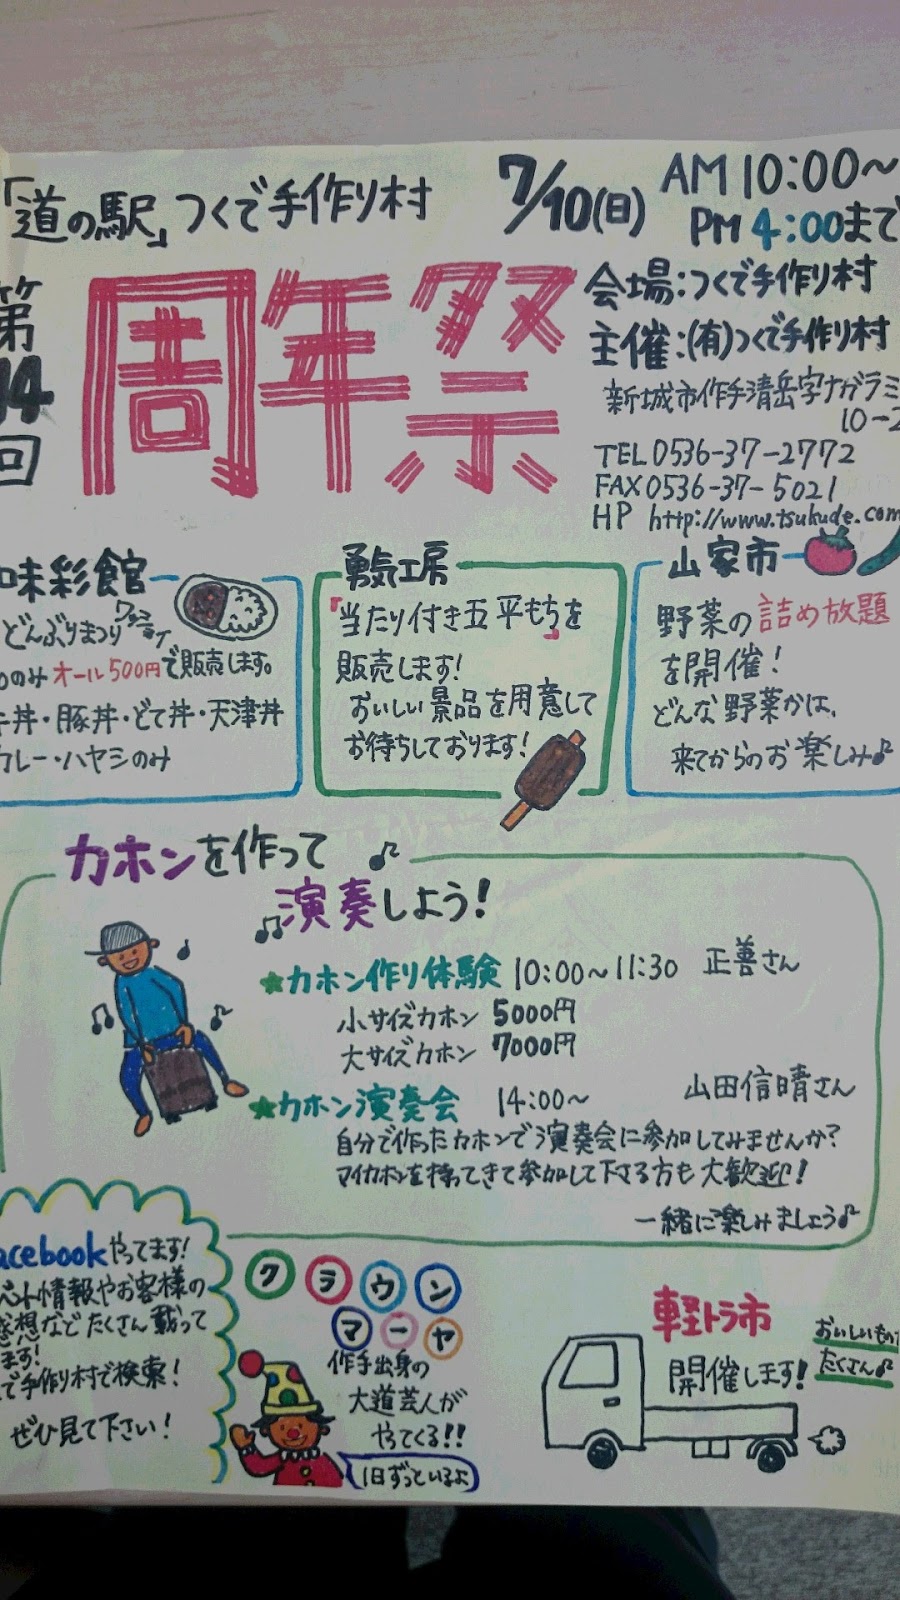 「道の駅」つくで手作り村
7/10(日) AM10:00～
PM4:00まで
第14回
周年祭
会場:つくで手作り村
主催:(有)つくで手作り村
新城市作手清岳字ナガラミ
10-2
TEL 0536-37-2772
FAX 0536-37-5021
HP http://www.tsukude.com
味彩館
どんぶりまつり
のみオール500円で販売します。
牛丼・豚丼・どて丼・天津丼
カレー・ハヤシのみ
勇気工房
「当たり付き五平もち」を
販売します!
おいしい景品を用意して
お待ちしております!
山家市
野菜の詰め放題
を開催!
どんな野菜かは、
来てからのお楽しみ♪
カホンを作って
演奏しよう!
★カホン作り体験 10:00～11:30 正善さん
小サイズカホン 5000円
大サイズカホン 7000円
★カホン演奏会 14:00～ 山田信晴さん
自分で作ったカホンで演奏会に参加してみませんか?
マイカホンを持ってきて参加して下さる方も大歓迎!
一緒に楽しみましょう♪
acebookやってます!
ベント情報やお客様の
感想などたくさん載って
ます!
で手作り村で検索!
ぜひ見て下さい!
クラウン
マーヤ
作手出身の
大道芸人が
やってくる!!
1日ずっといるよ
軽トラ市
開催します!
おいしいもの
たくさん♪